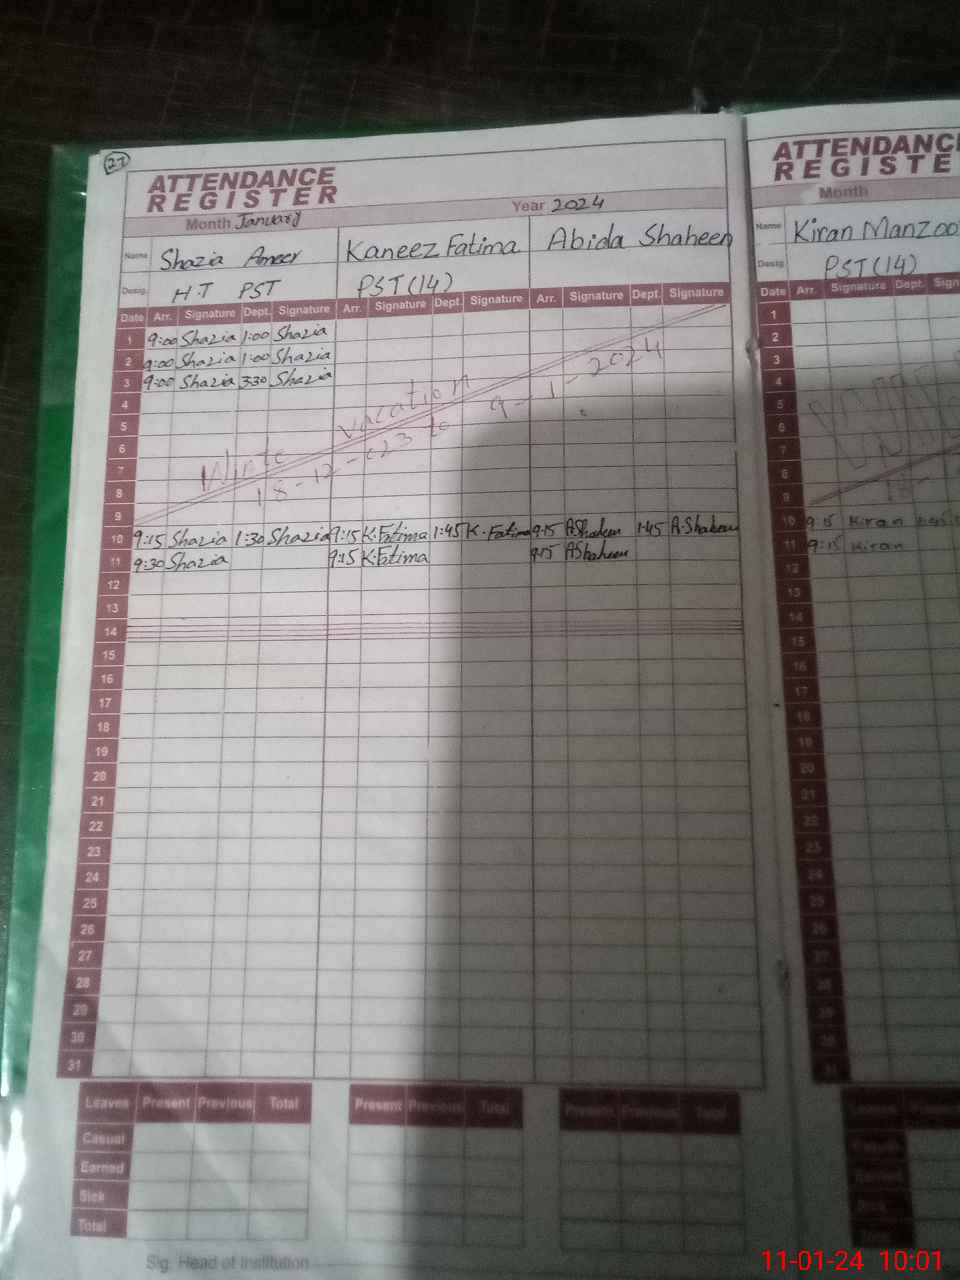 27
ATTENDANCE
REGISTER
Month January Year 2024
Name Shazia Ameer Kaneez Fatima Abida Shaheen
Desig. H.T PST PST(14)
Date Arr. Signature Dept. Signature Arr. Signature Dept. Signature Arr. Signature Dept. Signature
1 9:00 Shazia 1:00 Shazia
2 9:00 Shazia 1:00 Shazia
3 9:00 Shazia 3:30 Shazia
4
5
6
7
8
9
vacation
9-1-2024
10 9:15 Shazia 1:30 Shazia 9:15 K.Fatima 1:45 K.Fatima 9:15 A.Shaheen 1:45 A.Shaheen
11 9:30 Shazia 9:15 K.Fatima 9:15 A.Shaheen
12
13
14
15
16
17
18
19
20
21
22
23
24
25
26
27
28
29
30
31
Leaves Present Previous Total Present Previous Total Present Previous Total
Casual
Earned
Sick
Total
Sig. Head of Institution
ATTENDANCE
REGISTE
Month
Name Kiran Manzoo
Desig. PST(14)
Date Arr. Signature Dept. Sign
1
2
3
4
5
6
7
8
9
10 9:15 Kiran 1:45
11 9:15 Kiran
12
13
14
15
16
17
18
19
20
21
22
23
24
25
26
27
28
29
30
31
11-01-24 10:01